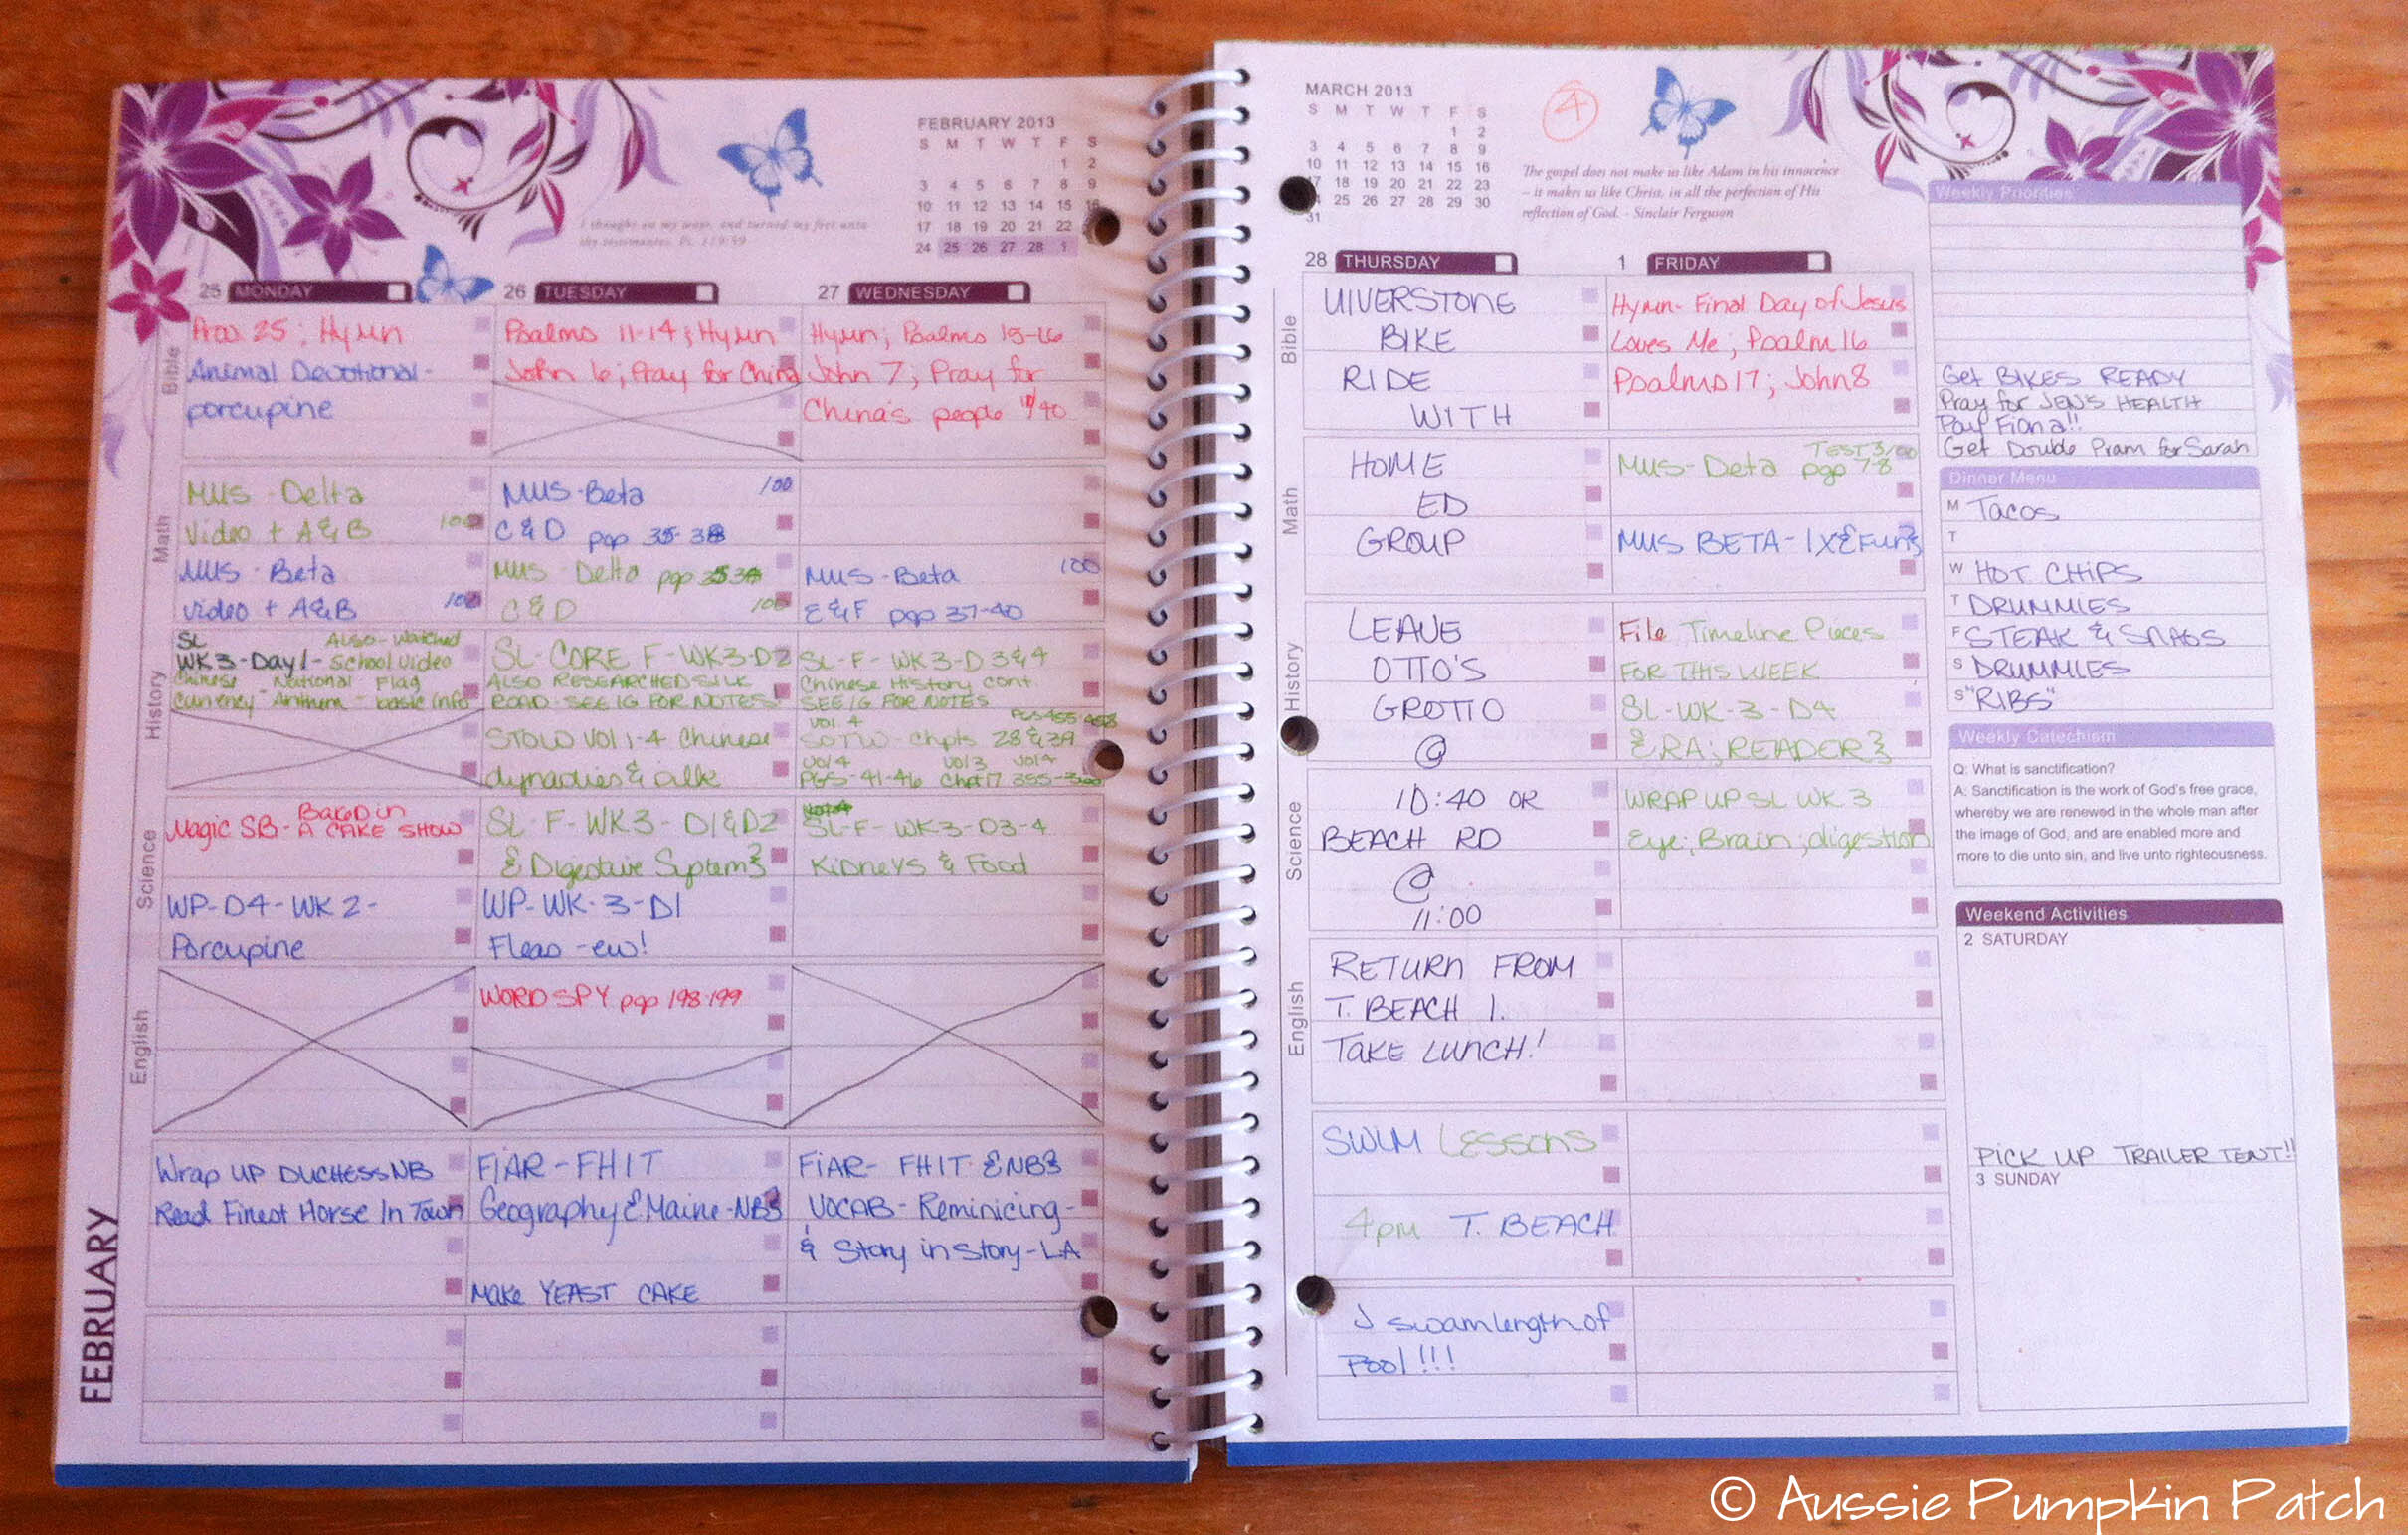 FEBRUARY 2013
S M T W T F S
1 2
3 4 5 6 7 8 9
10 11 12 13 14 15 16
17 18 19 20 21 22
24 25 26 27 28 1
I thought on my ways, and turned my feet unto
thy testimonies. Ps. 119:59
25 MONDAY
26 TUESDAY
27 WEDNESDAY
Bible
Prov. 25; Hymn
Animal Devotional-
porcupine
Psalms 11-14; Hymn
John 6; Pray for China
Hymn; Psalms 15-16
John 7; Pray for
China's people
Math
MUS - Delta
Video + A&B 100
MUS - Beta
Video + A&B 100
MUS-Beta 100
C & D pgs 35-38
MUS - Delta pgs
C & D 100
MUS-Beta 100
E&F pgs 37-40
History
SL ALSO-Watched
WK3-Day1-School Video
Chinese National Flag
Currency Anthem - basic info
SL-CORE F-WK3-D2
ALSO RESEARCHED SILK
ROAD-SEE IG FOR NOTES!
STOW VOl 1-4 Chinese
dynasties & silk
SL-F-WK3-D3&4
Chinese History cont.
SEE IG FOR NOTES
VOl 4
SOTW-Chpts 28 & 39
VOl 4 VOl 3 VOl 4
PGS-41-46 Chpt 17
Science
Magic SB- BAKED in
A CAKE SHOW
WP-D4-WK 2-
Porcupine
SL-F-WK3-D1&D2
& Digestive System}
WP-WK-3-D1
Fleas -ew!
SL-F-WK-3-D3-4
Kidneys & Food
English
WORD SPY pgs 198-199
Wrap UP DUCHESS NB
Read Finest Horse In Town
FiAR-FHIT
Geography & Maine-NB}
MAKE YEAST CAKE
FiAR- FHIT & NB}
VOCAB-Reminicing-
& Story in Story-LA
FEBRUARY
MARCH 2013
S M T W T F S
1 2
3 4 5 6 7 8 9
10 11 12 13 14 15 16
17 18 19 20 21 22 23
25 26 27 28 29 30
31
4
The gospel does not make us like Adam in his innocence
– it makes us like Christ, in all the perfection of His
reflection of God. - Sinclair Ferguson
28 THURSDAY
1 FRIDAY
Bible
ULVERSTONE
BIKE
RIDE
WITH
Hymn- Final Day of Jesus
Loves Me; Psalm 16
Psalms 17; John 8
Math
HOME
ED
GROUP
MUS-Delta pgs 7-8
MUS BETA-1X & Fun}
History
LEAVE
OTTO'S
GROTTO
@
File Timeline Pieces
FOR THIS WEEK
SL-WK-3-D4
{RA; READER}
Science
10:40 OR
BEACH RD
@
11:00
WRAP UP SL WK 3
Eye; Brain; digestion
English
RETURN FROM
T. BEACH 1.
TAKE LUNCH!
SWIM LESSONS
4pm T. BEACH
J swam length of
Pool!!!
Weekly Priorities
Get BIKES READY
Pray for JEN'S HEALTH
Pay Fiona!!
Get Double Pram for Sarah
Dinner Menu
M Tacos
T
W HOT CHIPS
T DRUMMIES
F STEAK & SNAGS
S DRUMMIES
S "RIBS"
Weekly Catechism
Q: What is sanctification?
A: Sanctification is the work of God's free grace,
whereby we are renewed in the whole man after
the image of God, and are enabled more and
more to die unto sin, and live unto righteousness.
Weekend Activities
2 SATURDAY
PICK UP TRAILER TENT!!
3 SUNDAY
© Aussie Pumpkin Patch